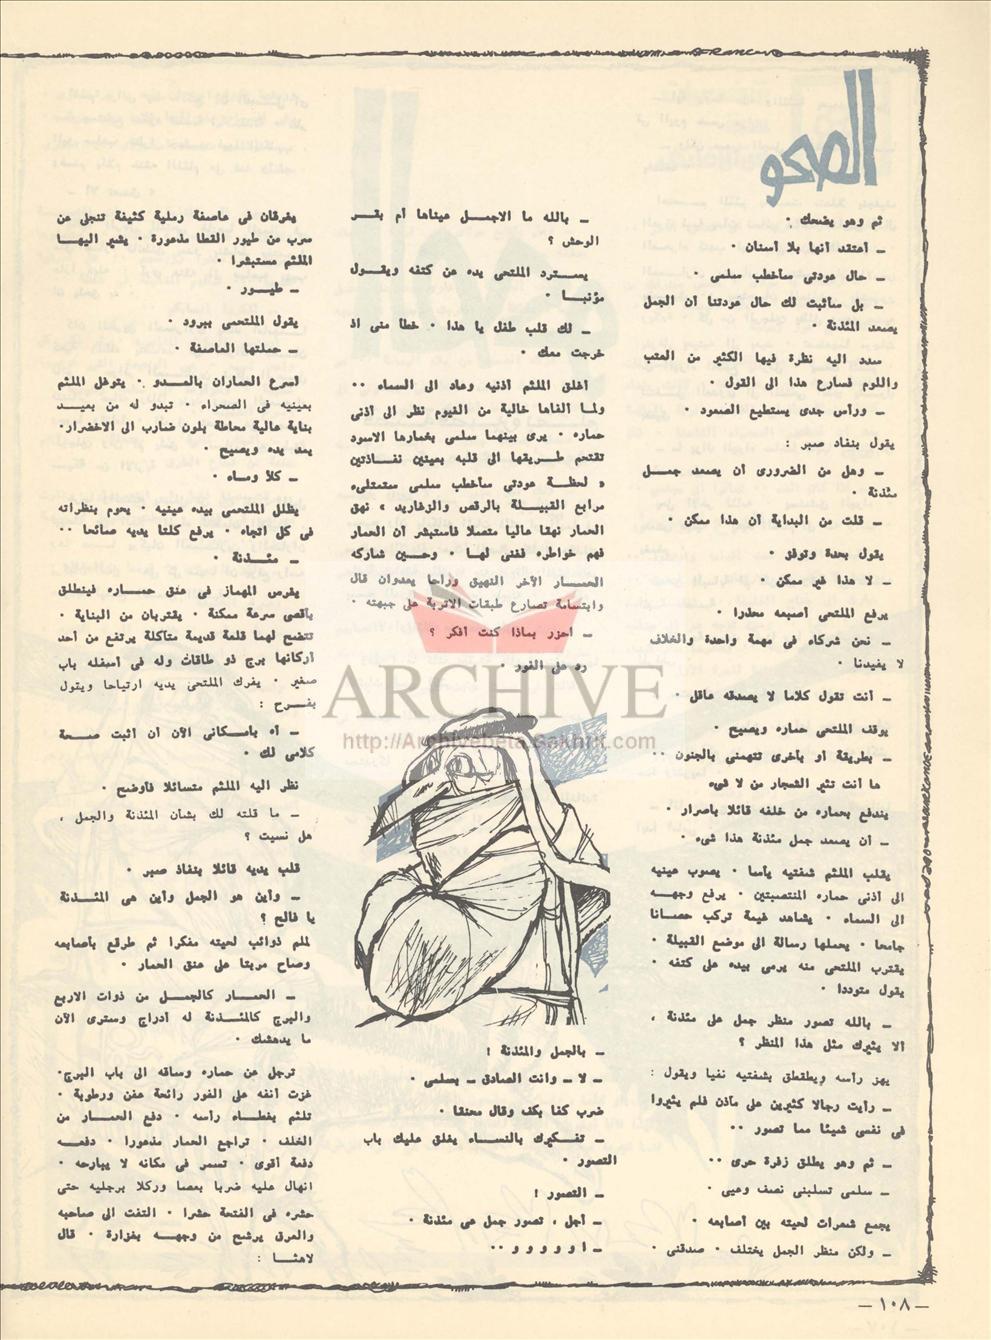 الصحو
ثم وهو يضحك ·
ـ أعتقد أنها بلا أسنان ·
ـ حال عودتى سأخطب سلمى ·
ـ بل سأثبت لك حال عودتنا أن الجمل
يصعد المئذنة ·
سدد اليه نظرة فيها الكثير من العتب
واللوم فسارع هذا الى القول ·
ـ ورأس جدى يستطيع الصعود ·
يقول بنفاد صبر :
ـ وهل من الضرورى أن يصعد جمل
مئذنة ·
ـ قلت من البداية أن هذا ممكن ·
يقول بحدة وتوفز ·
ـ لا هذا غير ممكن ·
يرفع الملتحى أصبعه محذرا ·
ـ نحن شركاء فى مهمة واحدة والخلاف
لا يفيدنا ·
ـ أنت تقول كلاما لا يصدقه عاقل ·
يوقف الملتحى حماره ويصيح ·
ـ بطريقة أو بأخرى تتهمنى بالجنون ··
ها أنت تثير الشجار من لا شىء
يندفع بحماره من خلفه قائلا بأصرار ·
ـ أن يصعد جمل مئذنة هذا شىء ·
يقلب الملثم شفتيه يأسا · يصوب عينيه
الى أذنى حماره المنتصبتين · يرفع وجهه
الى السماء · يشاهد غيمة تركب حصانا
جامحا · يحملها رسالة الى موضع القبيلة ·
يقترب الملتحى منه يرمى بيده على كتفه ·
يقول متوددا ·
ـ بالله تصور منظر جمل على مئذنة ،
ألا يثيرك مثل هذا المنظر ؟
يهز رأسه ويطقطق بشفتيه نفيا ويقول :
ـ رأيت رجالا كثيرين على مآذن فلم يثيروا
فى نفسى شيئا مما تصور ··
ـ ثم وهو يطلق زفرة حرى ··
ـ سلمى تسلبنى نصف وعيى ·
يجمع شعرات لحيته بين أصابعه ·
ـ ولكن منظر الجمل يختلف · صدقنى ·
ـ بالله ما الاجمل عيناها أم بقر
الوحش ؟
يسترد الملتحى يده عن كتفه ويقول
مؤنبا ·
ـ لك قلب طفل يا هذا · خطأ منى اذ
خرجت معك ·
أغلق الملثم أذنيه وعاد الى السماء ··
ولما ألفاها خالية من الغيوم نظر الى أذنى
حماره · يرى بينهما سلمى بخمارها الاسود
تقتحم طريقها الى قلبه بعينين نفاذتين
« لحظة عودتى سأخطب سلمى ستمتلىء
مرابع القبيلة بالرقص والزغاريد » نهق
الحمار نهقا عاليا متصلا فاستبشر أن الحمار
فهم خواطره فغنى لها · وحين شاركه
الحمار الآخر النهيق وراحا يعدوان قال
وابتسامة تصارع طبقات الاتربة على جبهته ·
ـ أحزر بماذا كنت أفكر ؟
رد على الفور ·
ـ بالجمل والمئذنة !
ـ لا ـ وانت الصادق ـ بسلمى ·
ضرب كفا بكف وقال محنقا ·
ـ تفكيرك بالنساء يغلق عليك باب
التصور ·
ـ التصور !
ـ أجل ، تصور جمل على مئذنة ·
ـ أوووو ··
يغرقان فى عاصفة رملية كثيفة تنجلى عن
سرب من طيور القطا مذعورة · يشير اليها
الملثم مستبشرا ·
ـ طيور ·
يقول الملتحى ببرود ·
ـ حملتها العاصفة ·
أسرع الحماران بالعدو · يتوغل الملثم
بعينيه فى الصحراء · تبدو له من بعيد
بناية عالية محاطة بلون ضارب الى الاخضرار·
يمد يده ويصيح ·
ـ كلأ وماء ·
يظلل الملتحى بيده عينيه · يحوم بنظراته
فى كل اتجاه · يرفع كلتا يديه صائحا ··
ـ مئذنة ·
يغرس المهماز فى عنق حماره فينطلق
بأقصى سرعة ممكنة · يقتربان من البناية ·
تتضح لهما قلعة قديمة متآكلة يرتفع من أحد
أركانها برج ذو طاقات وله فى أسفله باب
صغير · يفرك الملتحى يديه ارتياحا ويقول
بفرح :
ـ آه بأمكانى الآن أن اثبت صحة
كلامى لك ·
نظر اليه الملثم متسائلا فأوضح ·
ـ ما قلته لك بشأن المئذنة والجمل ،
هل نسيت ؟
قلب يديه قائلا بنفاذ صبر ·
ـ وأين هو الجمل وأين هى المئذنة
يا فالح ؟
لملم ذوائب لحيته مفكرا ثم طرقع بأصابعه
وصاح مربتا على عنق الحمار ·
ـ الحمار كالجمل من ذوات الاربع
والبرج كالمئذنة له أدراج وسترى الآن
ما يدهشك ·
ترجل عن حماره وساقه الى باب البرج·
غزت أنفه على الفور رائحة عفن ورطوبة ·
تلثم بغطاء رأسه · دفع الحمار من
الخلف · تراجع الحمار مذعورا · دفعه
دفعة أقوى · تسمر فى مكانه لا يبارحه ·
انهال عليه ضربا بعصا وركلا برجليه حتى
حشره فى الفتحة حشرا · التفت الى صاحبه
والعرق يرشح من وجهه بغزارة · قال
لاهثا :
ARCHIVE
http://Archivebeta.Sakhrit.com
ـ ١٠٨ ـ